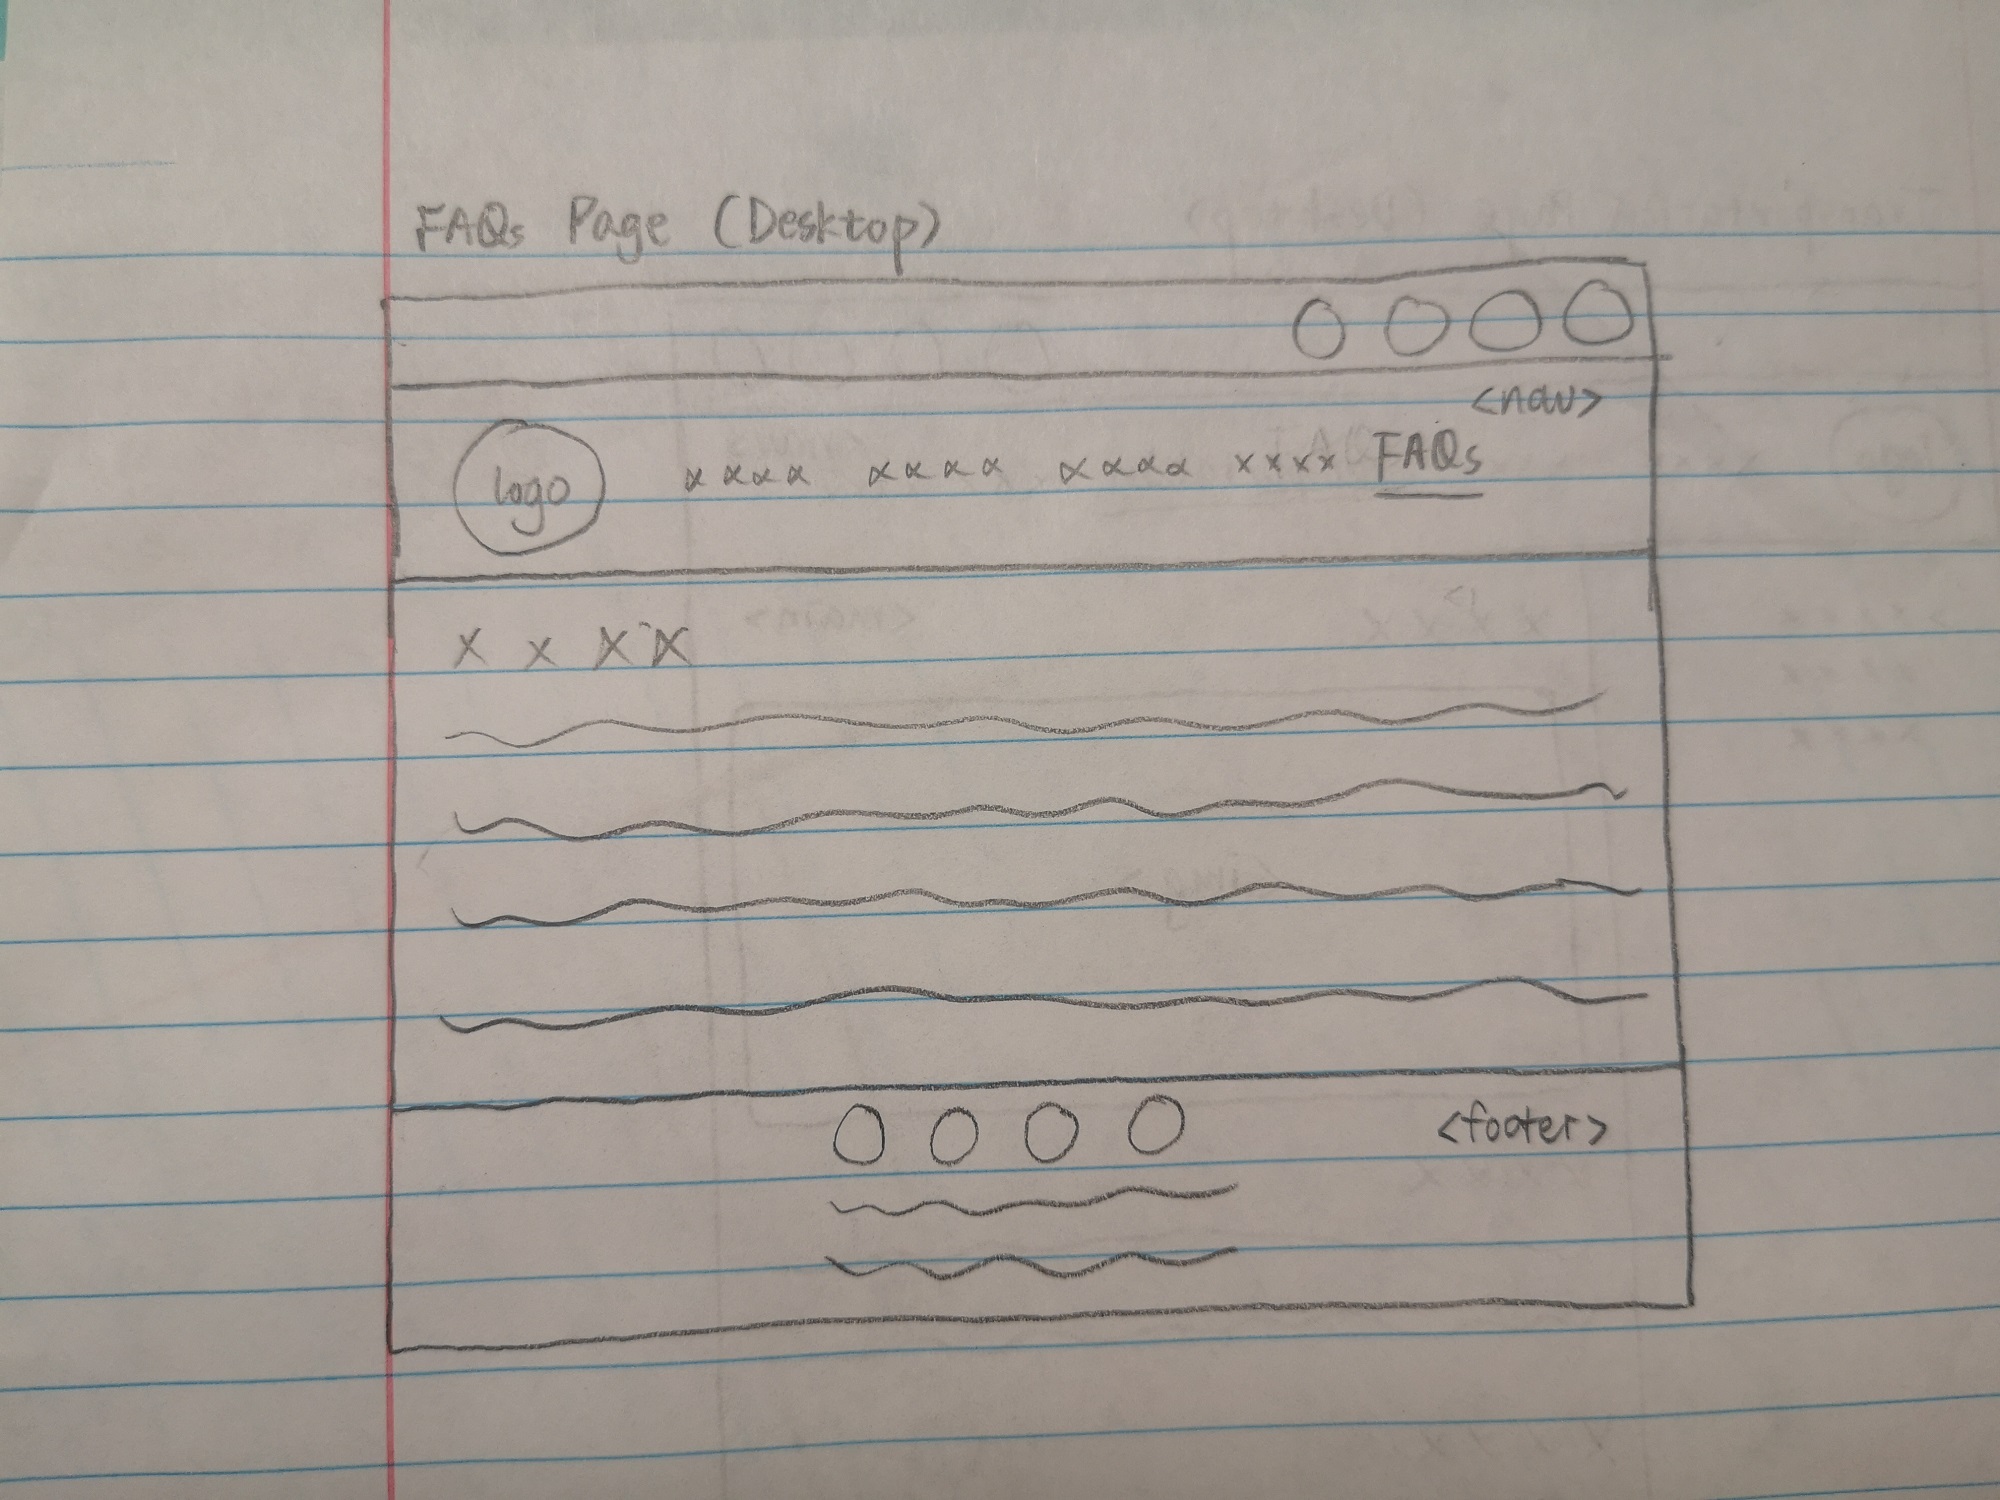 FAQs Page (Desktop)
<nav>
logo xxxx xxxx xxxx xxxx FAQs
x x x x
<footer>